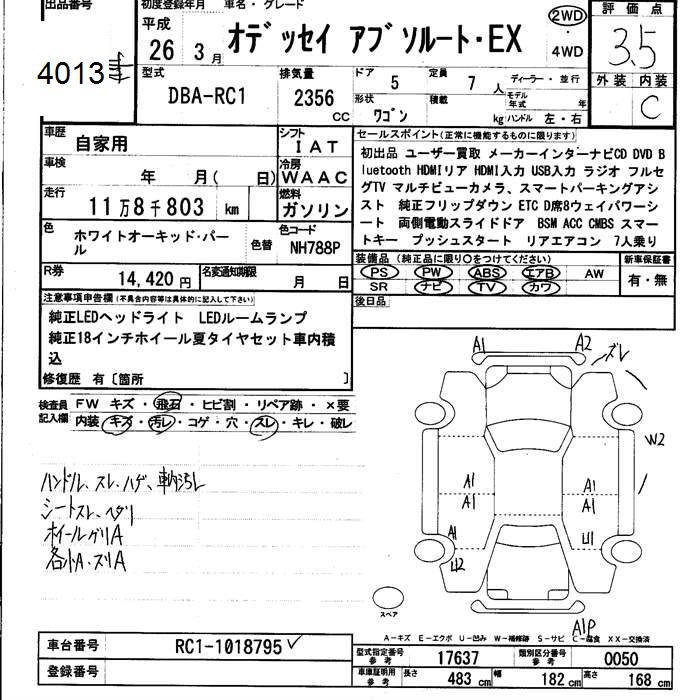 出品番号 初度登録年月 車名・グレード 2WD 評価点
4013 平成 26 3月 オデッセイ アブソルート・EX 4WD 3.5
型式 排気量 ドア 5 定員 7人 ディーラー・並行 外装 内装
DBA-RC1 2356 CC 形状 ワゴン 積載 kg モデル年式 年 ハンドル 左・右 C
車歴 自家用 シフト IAT セールスポイント(正常に機能するものに限ります)
車検 年 月(日) 冷房 WAAC 初出品 ユーザー買取 メーカーインターナビCD DVD B
luetooth HDMIリア HDMI入力 USB入力 ラジオ フルセ
走行 11万8千803 km 燃料 ガソリン グTV マルチビューカメラ、スマートパーキングアシ
スト 純正フリップダウン ETC D席8ウェイパワーシ
色 ホワイトオーキッド・パール 色替 色コード NH788P ート 両側電動スライドドア BSM ACC CMBS スマー
トキー プッシュスタート リアエアコン 7人乗り
R券 14,420円 名変通知期限 月 日 装備品(純正品に限り○をつけてください) 新車保証書
PS PW ABS エアB AW 有・無
SR ナビ TV カワ
注意事項申告欄(不具合内容等は具体的に記入して下さい) 後日品
純正LEDヘッドライト LEDルームランプ
純正18インチホイール夏タイヤセット車内積
込
修復歴 有〔箇所 〕
検査員記入欄 FW キズ・飛石・ヒビ割・リペア跡・×要
内装・キズ・汚レ・コゲ・穴・スレ・キレ・破レ
A1 A2 ズレ
W2
A1 A1
A1 A1
A1 U1
U2
ハンドル、スレ、ハゲ、車内汚レ
シートスレ、ヘタリ
ホイールガリA
各小A・スリA
スペア
A1P
A-キズ E-エクボ U-凹み W-補修跡 S-サビ C-腐食 XX-交換済
車台番号 RC1-1018795 型式指定番号 参考 17637 類別区分番号 参考 0050
登録番号 車庫証明用 参考 長さ 483 cm 幅 182 cm 高さ 168 cm